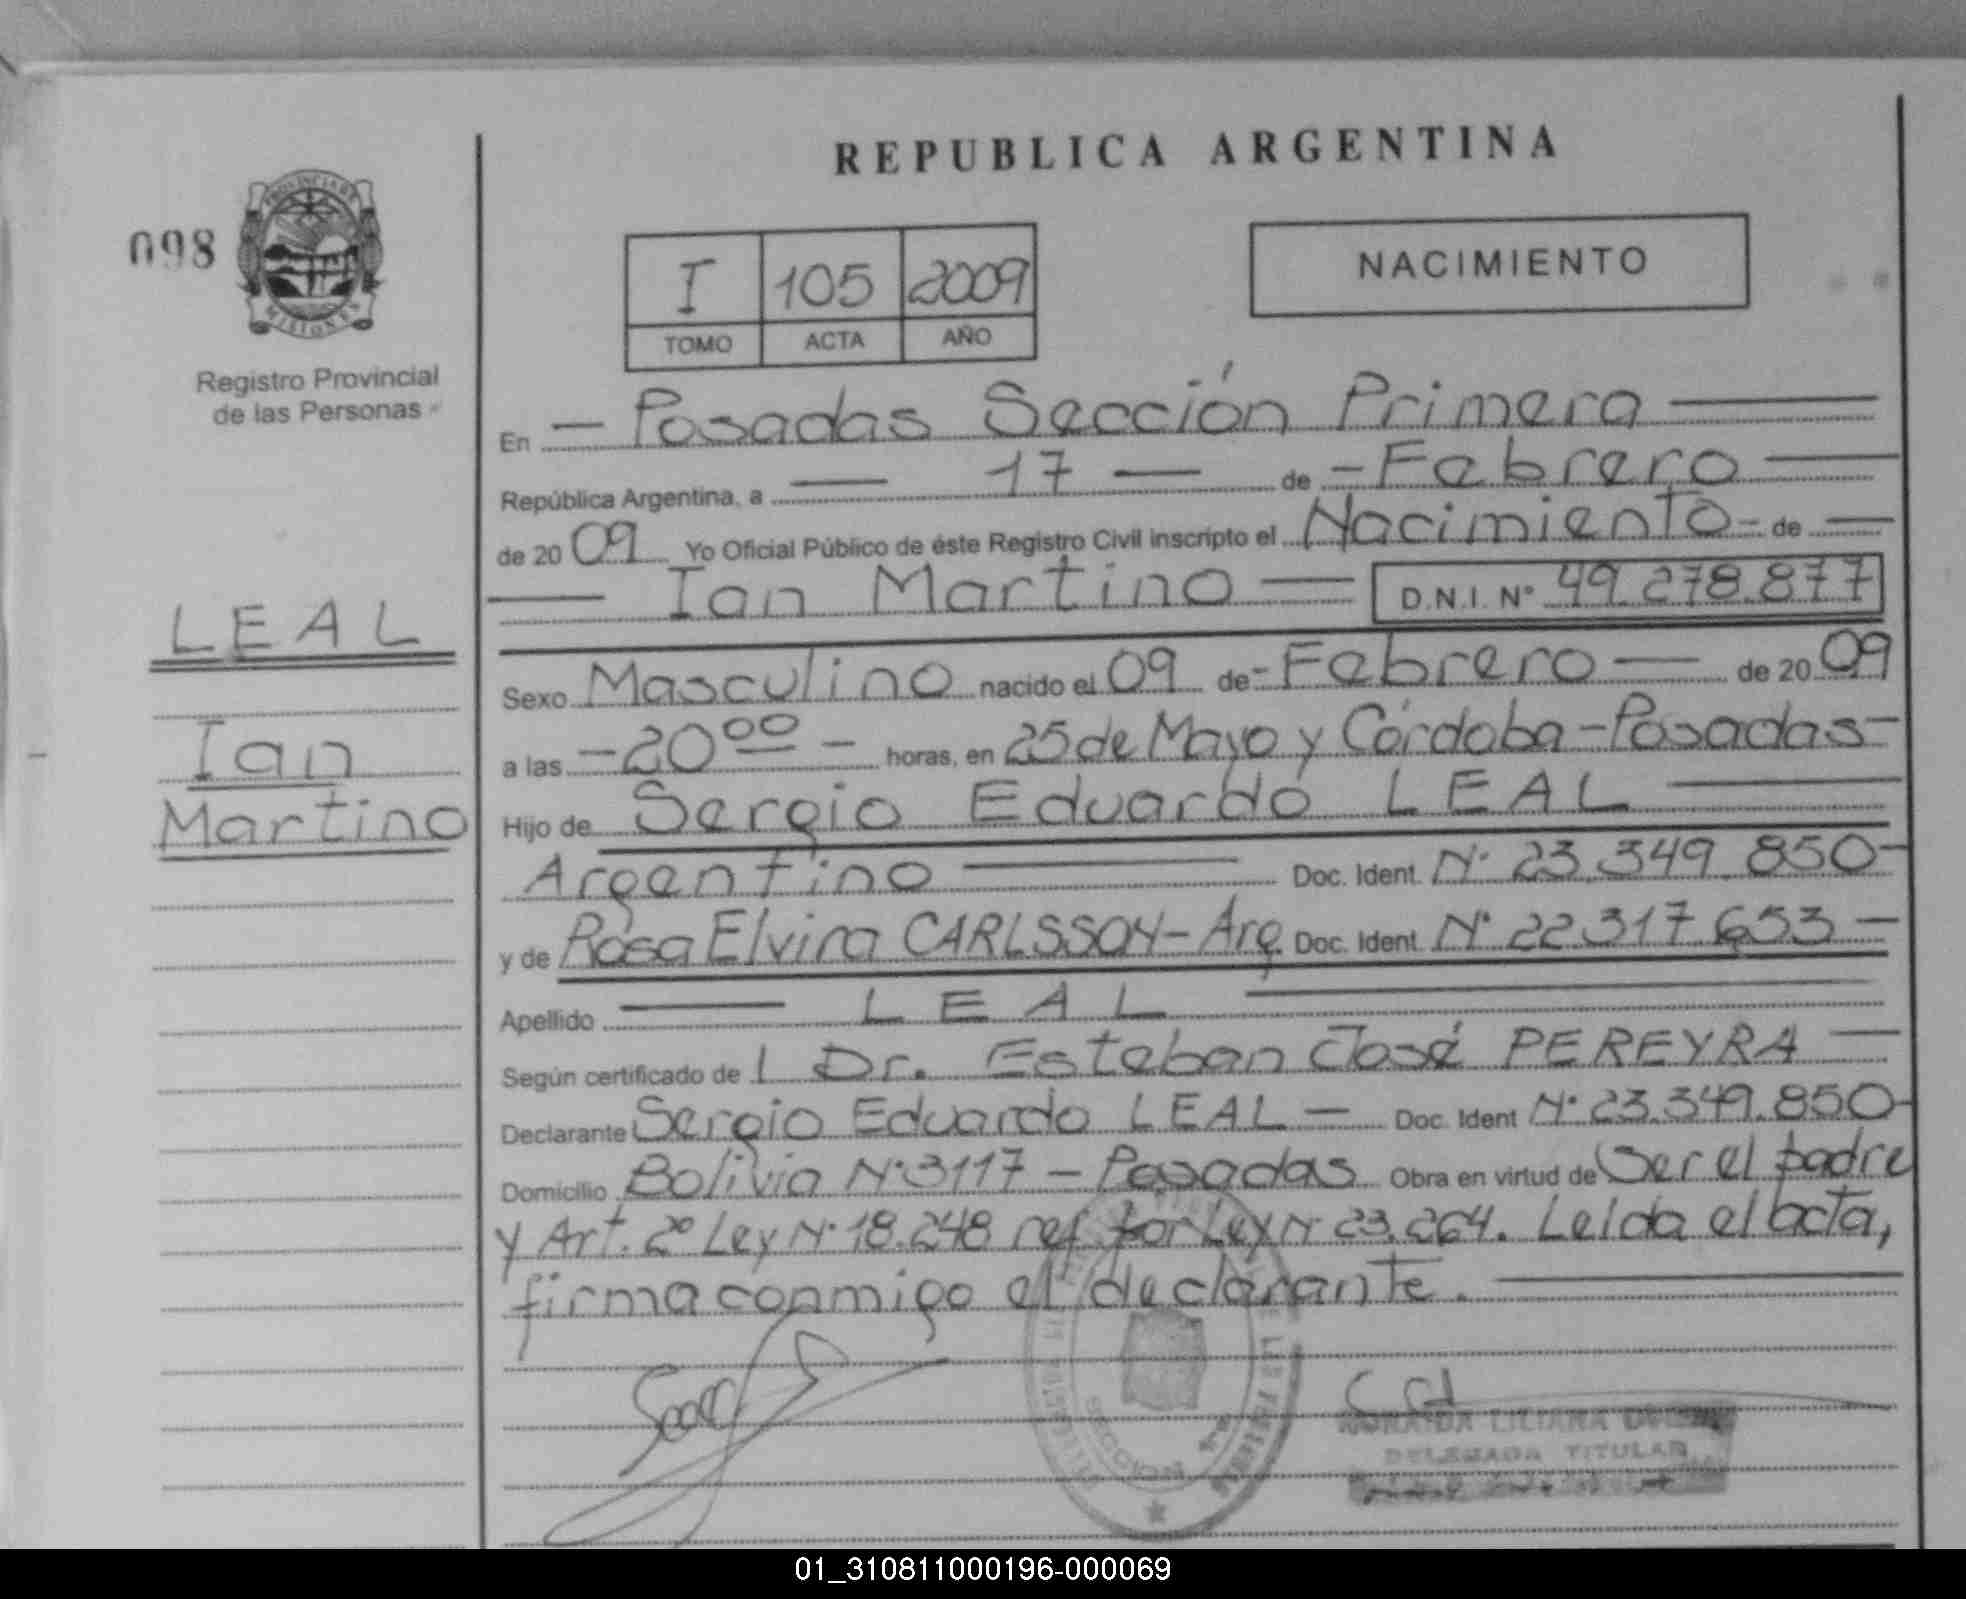 REPUBLICA ARGENTINA
098
PROVINCIA DE
MISIONES
Registro Provincial
de las Personas
I 105 2009
TOMO ACTA AÑO
NACIMIENTO
En — Posadas Sección Primera —
República Argentina, a — 17 — de - Febrero —
de 20 09 Yo Oficial Público de éste Registro Civil inscripto el Nacimiento - de —
— Ian Martino — D.N.I. Nº 49.278.877
LEAL
Ian
Martino
Sexo Masculino nacido el 09 de - Febrero — de 20 09
a las - 20⁰⁰ - horas, en 25 de Mayo y Córdoba - Posadas -
Hijo de Sergio Eduardo LEAL —
Argentino — Doc. Ident. Nº 23.349.850 -
y de Rosa Elvira CARLSSON - Arg. Doc. Ident. Nº 22.317.653 -
Apellido — LEAL —
Según certificado de l Dr. Esteban José PEREYRA —
Declarante Sergio Eduardo LEAL — Doc. Ident Nº 23.349.850 -
Domicilio Bolivia Nº 3117 - Posadas Obra en virtud de Ser el padre
y Art. 2º Ley Nº 18.248 ref. por Ley Nº 23.264. Leida el acta,
firma conmigo el declarante. —
SECCION
LILIANA
DELEGADA TITULAR
01_310811000196-000069